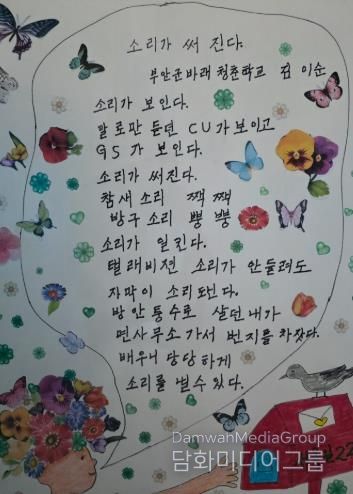 소리가 써 진다.
부안군바래 청춘학교 김 이순
소리가 보인다.
말로만 듣던 CU가 보이고
GS 가 보인다.
소리가 써진다.
참새 소리 짹 짹
방구 소리 뿡 뿡
소리가 읽힌다.
텔래비젼 소리가 안들려도
자막이 소리된다.
방안통수로 살던 내가
면사무소가서 번지를 차잤다.
배우니 당당하게
소리를 낼수 있다.
DamwanMediaGroup
담화미디어그룹